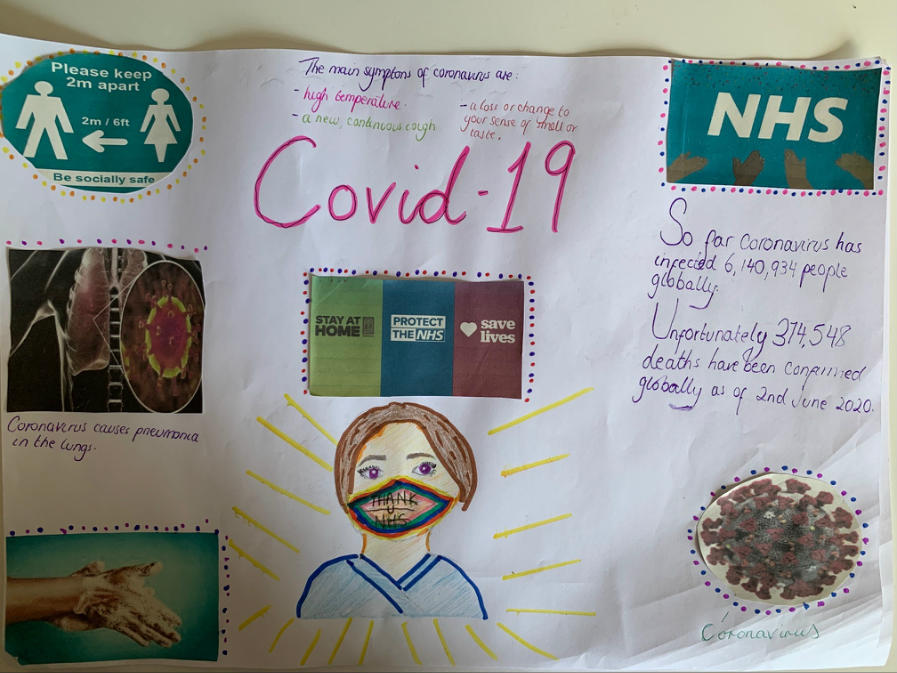 Please keep
2m apart
2m / 6ft
Be socially safe
The main symptons of coronavirus are:
- high temperature.
- a new, continuous cough
- a loss or change to
your sense of smell or
taste.
Covid-19
NHS
So far Coronavirus has
infected 6,140,934 people
globally.
Unfortunately 374,548
deaths have been confirmed
globally as of 2nd June 2020.
STAY AT
HOME
PROTECT
THE NHS
save
lives
Coronavirus causes pneumonia
in the lungs.
THANK
NHS
Coronavirus